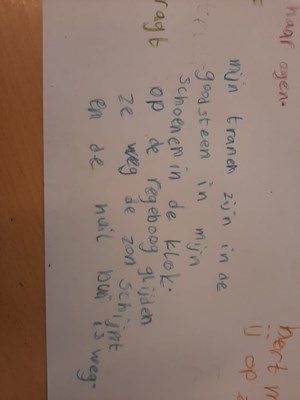 haar ogen.
mijn tranen zijn in de
goodsteen in mijn
schoenen in de klok.
op de regeboog glijden
ze weg de zon schijnt
en de huil bui is weg.
ragt
hert m
ij op